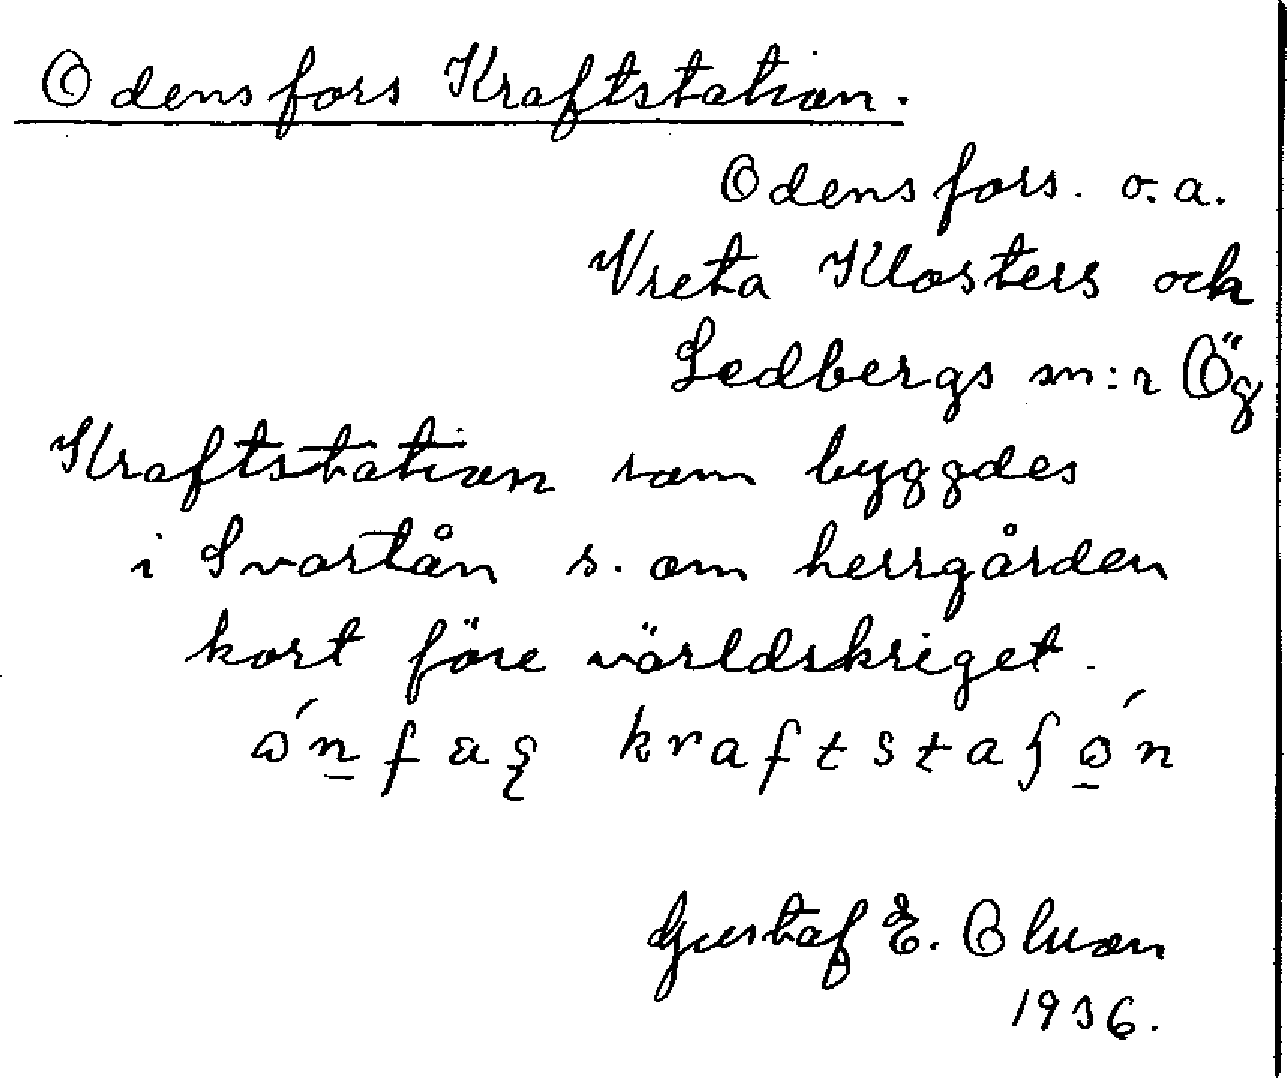 Odensfors Kraftstation.
Odensfors. o. a.
Vreta Klosters och
Ledbergs sn:r Ög
Kraftstation som byggdes
i Svartån s. om herrgården
kort före världskriget.
kraftstaʃǝ̠́n
Gustaf E. Olsson
1936.